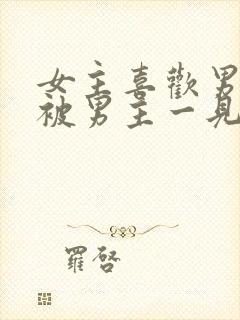 女主喜歡男
被男主一見
羅啓